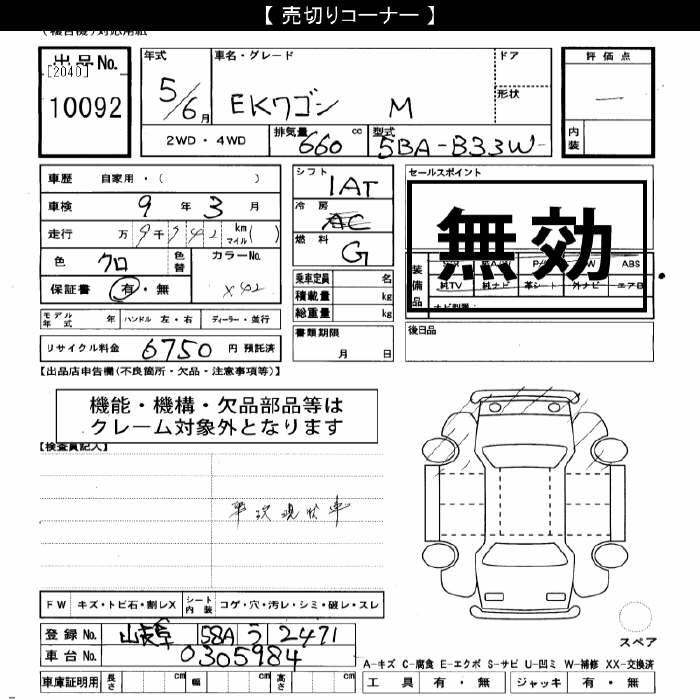 【 売切りコーナー 】
出品No.
[2040]
10092
年式
5/6月
車名・グレード
EKワゴン M
ドア
形状
評価点
内装
2WD・4WD
排気量
660 cc
型式
5BA-B33W
車歴 自家用・( )
車検 9年 3月
走行 万 9千942 km マイル( )
色 クロ
色替
カラーNo.
X42
保証書 有・無
モデル年式 年
ハンドル 左・右
ディーラー・並行
リサイクル料金 6750 円 預託済
シフト
IAT
冷房
AC
燃料
G
乗車定員 名
積載量 kg
総重量 kg
書類期限
月 日
セールスポイント
無効
装備品
ABS
純TV 純ナビ 革シート 外ナビ エアB
後日品
【出品店申告欄(不良箇所・欠品・注意事項等)】
機能・機構・欠品部品等は
クレーム対象外となります
【検査員記入】
事故現状車
FW キズ・トビ石・割レX
シート内装 コゲ・穴・汚レ・シミ・破レ・スレ
登録No. 58A う 2471
車台No. 0305984
車庫証明用 長さ cm 幅 cm 高さ cm
スペア
A-キズ C-腐食 E-エクボ S-サビ U-凹ミ W-補修 XX-交換済
工具 有・無 ジャッキ 有・無